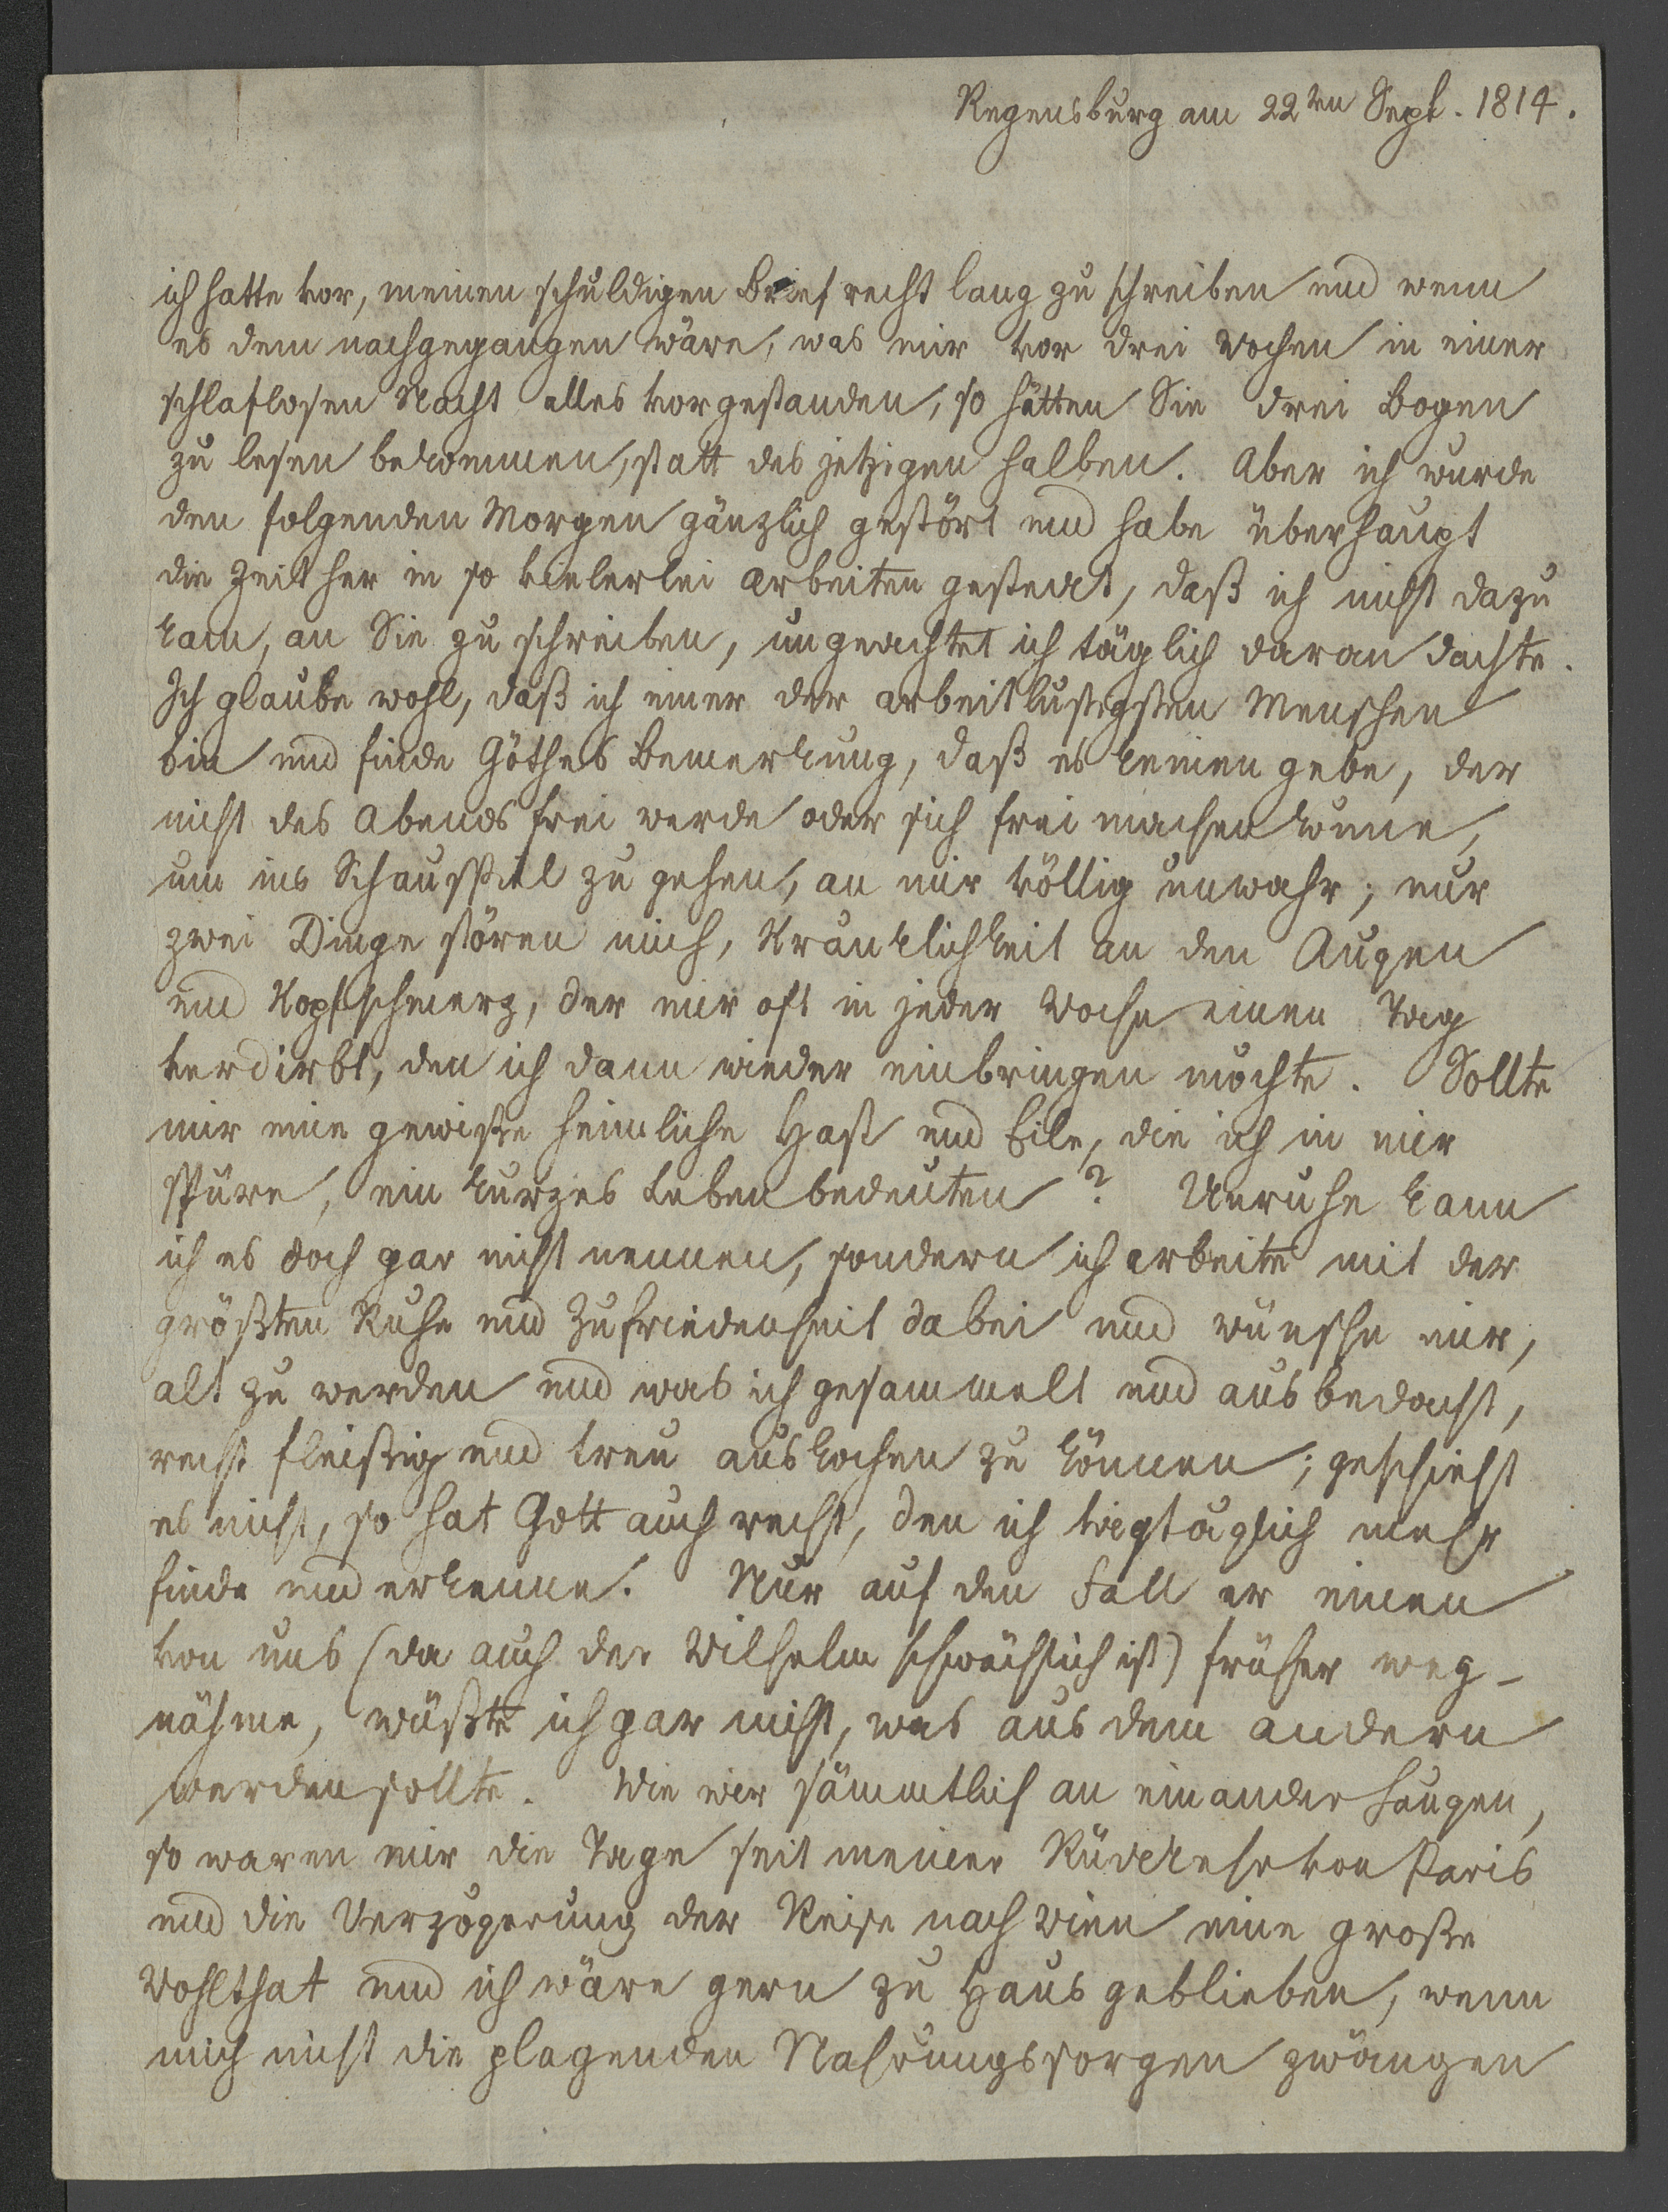 Regensburg am 22ten Sept. 1814.
ich hatte vor, meinen schuldigen Brief recht lang zu schreiben und wenn
es dem nachgegangen wäre, was mir vor drei Wochen in einer
schlaflosen Nacht alles vorgestanden, so hätten Sie drei Bogen
zu lesen bekommen, statt des jetzigen halben. Aber ich wurde
den folgenden Morgen gänzlich gestört und habe überhaupt
die Zeit her in so vielerlei Arbeiten gesteckt, daß ich nicht dazu
kam, an Sie zu schreiben, ungeachtet ich täglich daran dachte.
Ich glaube wohl, daß ich einer der arbeitlustigsten Menschen
bin und finde Göthes Bemerkung, daß es keinen gebe, der
nicht des Abends frei werde oder sich frei machen könne,
um ins Schauspiel zu gehen, an mir völlig unwahr; nur
zwei Dinge stören mich, Kränklichkeit an den Augen
und Kopfschmerz, der mir oft in jeder Woche einen Tag
verdirbt, den ich dann wieder einbringen möchte. Sollte
mir eine gewiße heimliche Hast und Eile, die ich in mir
spüre, ein kurzes Leben bedeuten? Unruhe kann
ich es doch gar nicht nennen, sondern ich arbeite mit der
größten Ruhe und Zufriedenheit dabei und wünsche mir,
alt zu werden und was ich gesammelt und ausbedacht,
recht fleißig und treu auskochen zu können; geschieht
es nicht, so hat Gott auch recht, den ich tagtäglich mehr
finde und erkenne. Nur auf den Fall er einen
von uns (da auch der Wilhelm schwächlich ist) früher weg-
nähme, wüßte ich gar nicht, was aus dem andern
werden sollte. Wie wir sämmtlich an einander hangen,
so waren mir die Tage seit meiner Rückkehr von Paris
und die Verzögerung der Reise nach Wien eine große
Wohlthat und ich wäre gern zu Haus geblieben, wenn
mich nicht die plagenden Nahrungssorgen zwängen